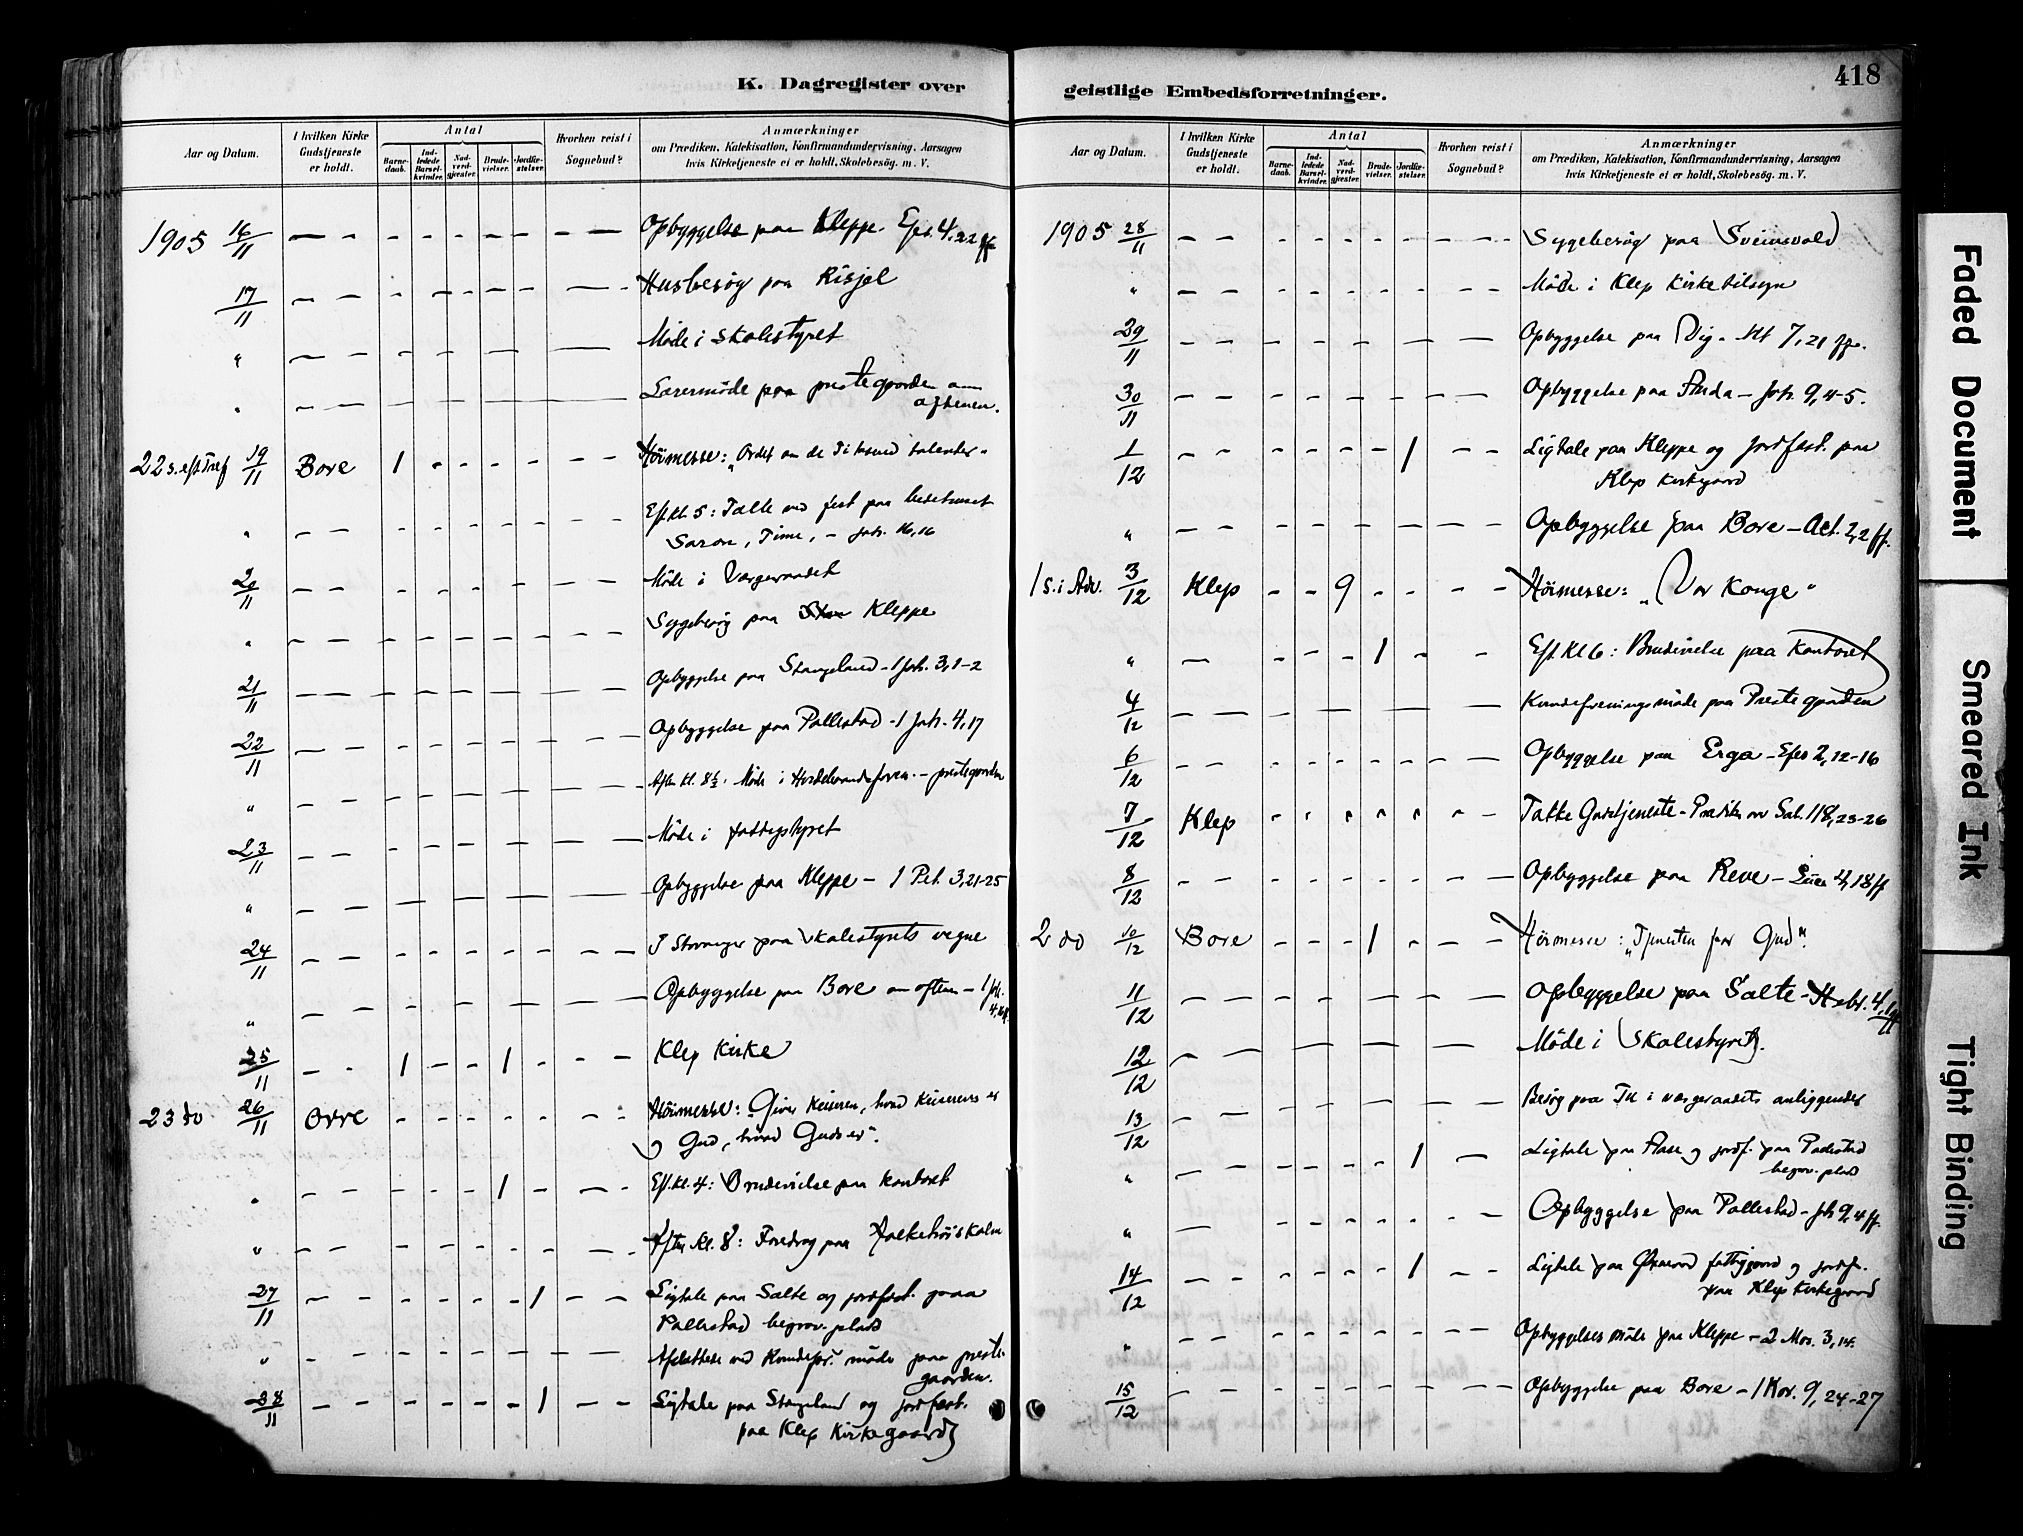 K. Dagregister over
Aar og Datum.
I hvilken Kirke Gudstjeneste er holdt.
Antal
Barne-daab.
Ind-ledede Barsel-kvinder.
Nad-verd-gjæster.
Brude-vielser.
Jordfæ-stelser.
Hvorhen reist i Sognebud?
Anmærkninger
om Prædiken, Katekisation, Konfirmandundervisning, Aarsagen
hvis Kirketjeneste ei er holdt, Skolebesög. m. V.
1905 16/11 Opbyggelse paa Kleppe. Efes. 4,22 ff
17/11 Husbesøg paa Risjel
" Møde i skolestyret
" Lærermøde paa prestegaarden om
aftenen.
22 s. eft Tref 19/11 Bore 1 Høimesse: "Ordet om de Ti tusend talenter"
" Eft. kl. 5: Talte ved fest paa bedehuset
Saron, Time, - Joh. 16,16
20/11 Møde i Værgeraadet
" Sygebesøg paa Kleppe
21/11 Opbyggelse paa Stangeland - 1 Joh. 3,1-2
22/11 Opbyggelse paa Pallestad - 1 Joh. 4,17
" Aften kl. 8½. Møde i - prestegaarden
23/11 Møde i fattigstyret
" Opbyggelse paa Kleppe - 1 Pet. 3,21-25
24/11 I Stavanger paa skolestyrets vegne
" Opbyggelse paa Bore om aften - 1 Joh.
25/11 1 1 Klep Kirke
23 do 26/11 Orre Høimesse: "Giver Keiseren, hvad Keiserens er
og Gud, hvad Guds er".
" 1 Eft. kl. 4: Brudevielse paa kontoret
" Aften kl. 8: Foredrag paa Folkehøiskolen
27/11 1 Ligtale paa Salte og jordfæst. paa
Pallestad begrav. plads
" Afsluttede ved Kvindefor. møde paa preste-
gaarden.
28/11 1 Ligtale paa Stangeland og jordfæst.
paa Klep Kirkegaard
418
geistlige Embedsforretninger.
Aar og Datum.
I hvilken Kirke Gudstjeneste er holdt.
Antal
Barne-daab.
Ind-ledede Barsel-kvinder.
Nad-verd-gjæster.
Brude-vielser.
Jordfæ-stelser.
Hvorhen reist i Sognebud?
Anmærkninger
om Prædiken, Katekisation, Konfirmandundervisning, Aarsagen
hvis Kirketjeneste ei er holdt, Skolebesög. m. V.
1905 28/11 Sygebesøg paa Sveinsvold
" Møde i Klep Kirketilsyn
29/11 Opbyggelse paa Vig - Mt 7,21 ff.
30/11 Opbyggelse paa Anda - Joh. 9,4-5.
1/12 1 Ligtale paa Kleppe og Jordfæst. paa
Klep Kirkegaard
" Opbyggelse paa Bore - Act. 2,2 ff.
1 s. i Adv. 3/12 Klep 9 Høimesse: "Vor Konge"
" 1 Eft. Kl 6: Brudevielse paa Kontoret
4/12 Kvindeforeningsmøde paa Prestegaarden
6/12 Opbyggelse paa Erga - Efes 2,12-16
7/12 Klep Takke Gudstjeneste - Prædiken over Sal. 118,23-26
8/12 Opbyggelse paa Reve - Luc 4,18 ff
2 do 10/12 Bore 1 Høimesse: "Tjenesten for Gud".
11/12 Opbyggelse paa Salte - Hebr. 4,1 ff
12/12 Møde i skolestyret.
13/12 Besøg paa Tu i værgeraadets anliggender
" 1 Ligtale paa Aase og jordf. paa Pallestad
begrav. plads
" Opbyggelse paa Pallestad - Joh 9,4 ff.
14/12 1 Ligtale paa fattiggaard og jordf.
paa Klep Kirkegaard
" Opbyggelsesmøde paa Kleppe - 2 Mos. 3,14.
15/12 Opbyggelse paa Bore - 1 Kor. 9,24-27
Faded Document
Smeared Ink
Tight Binding